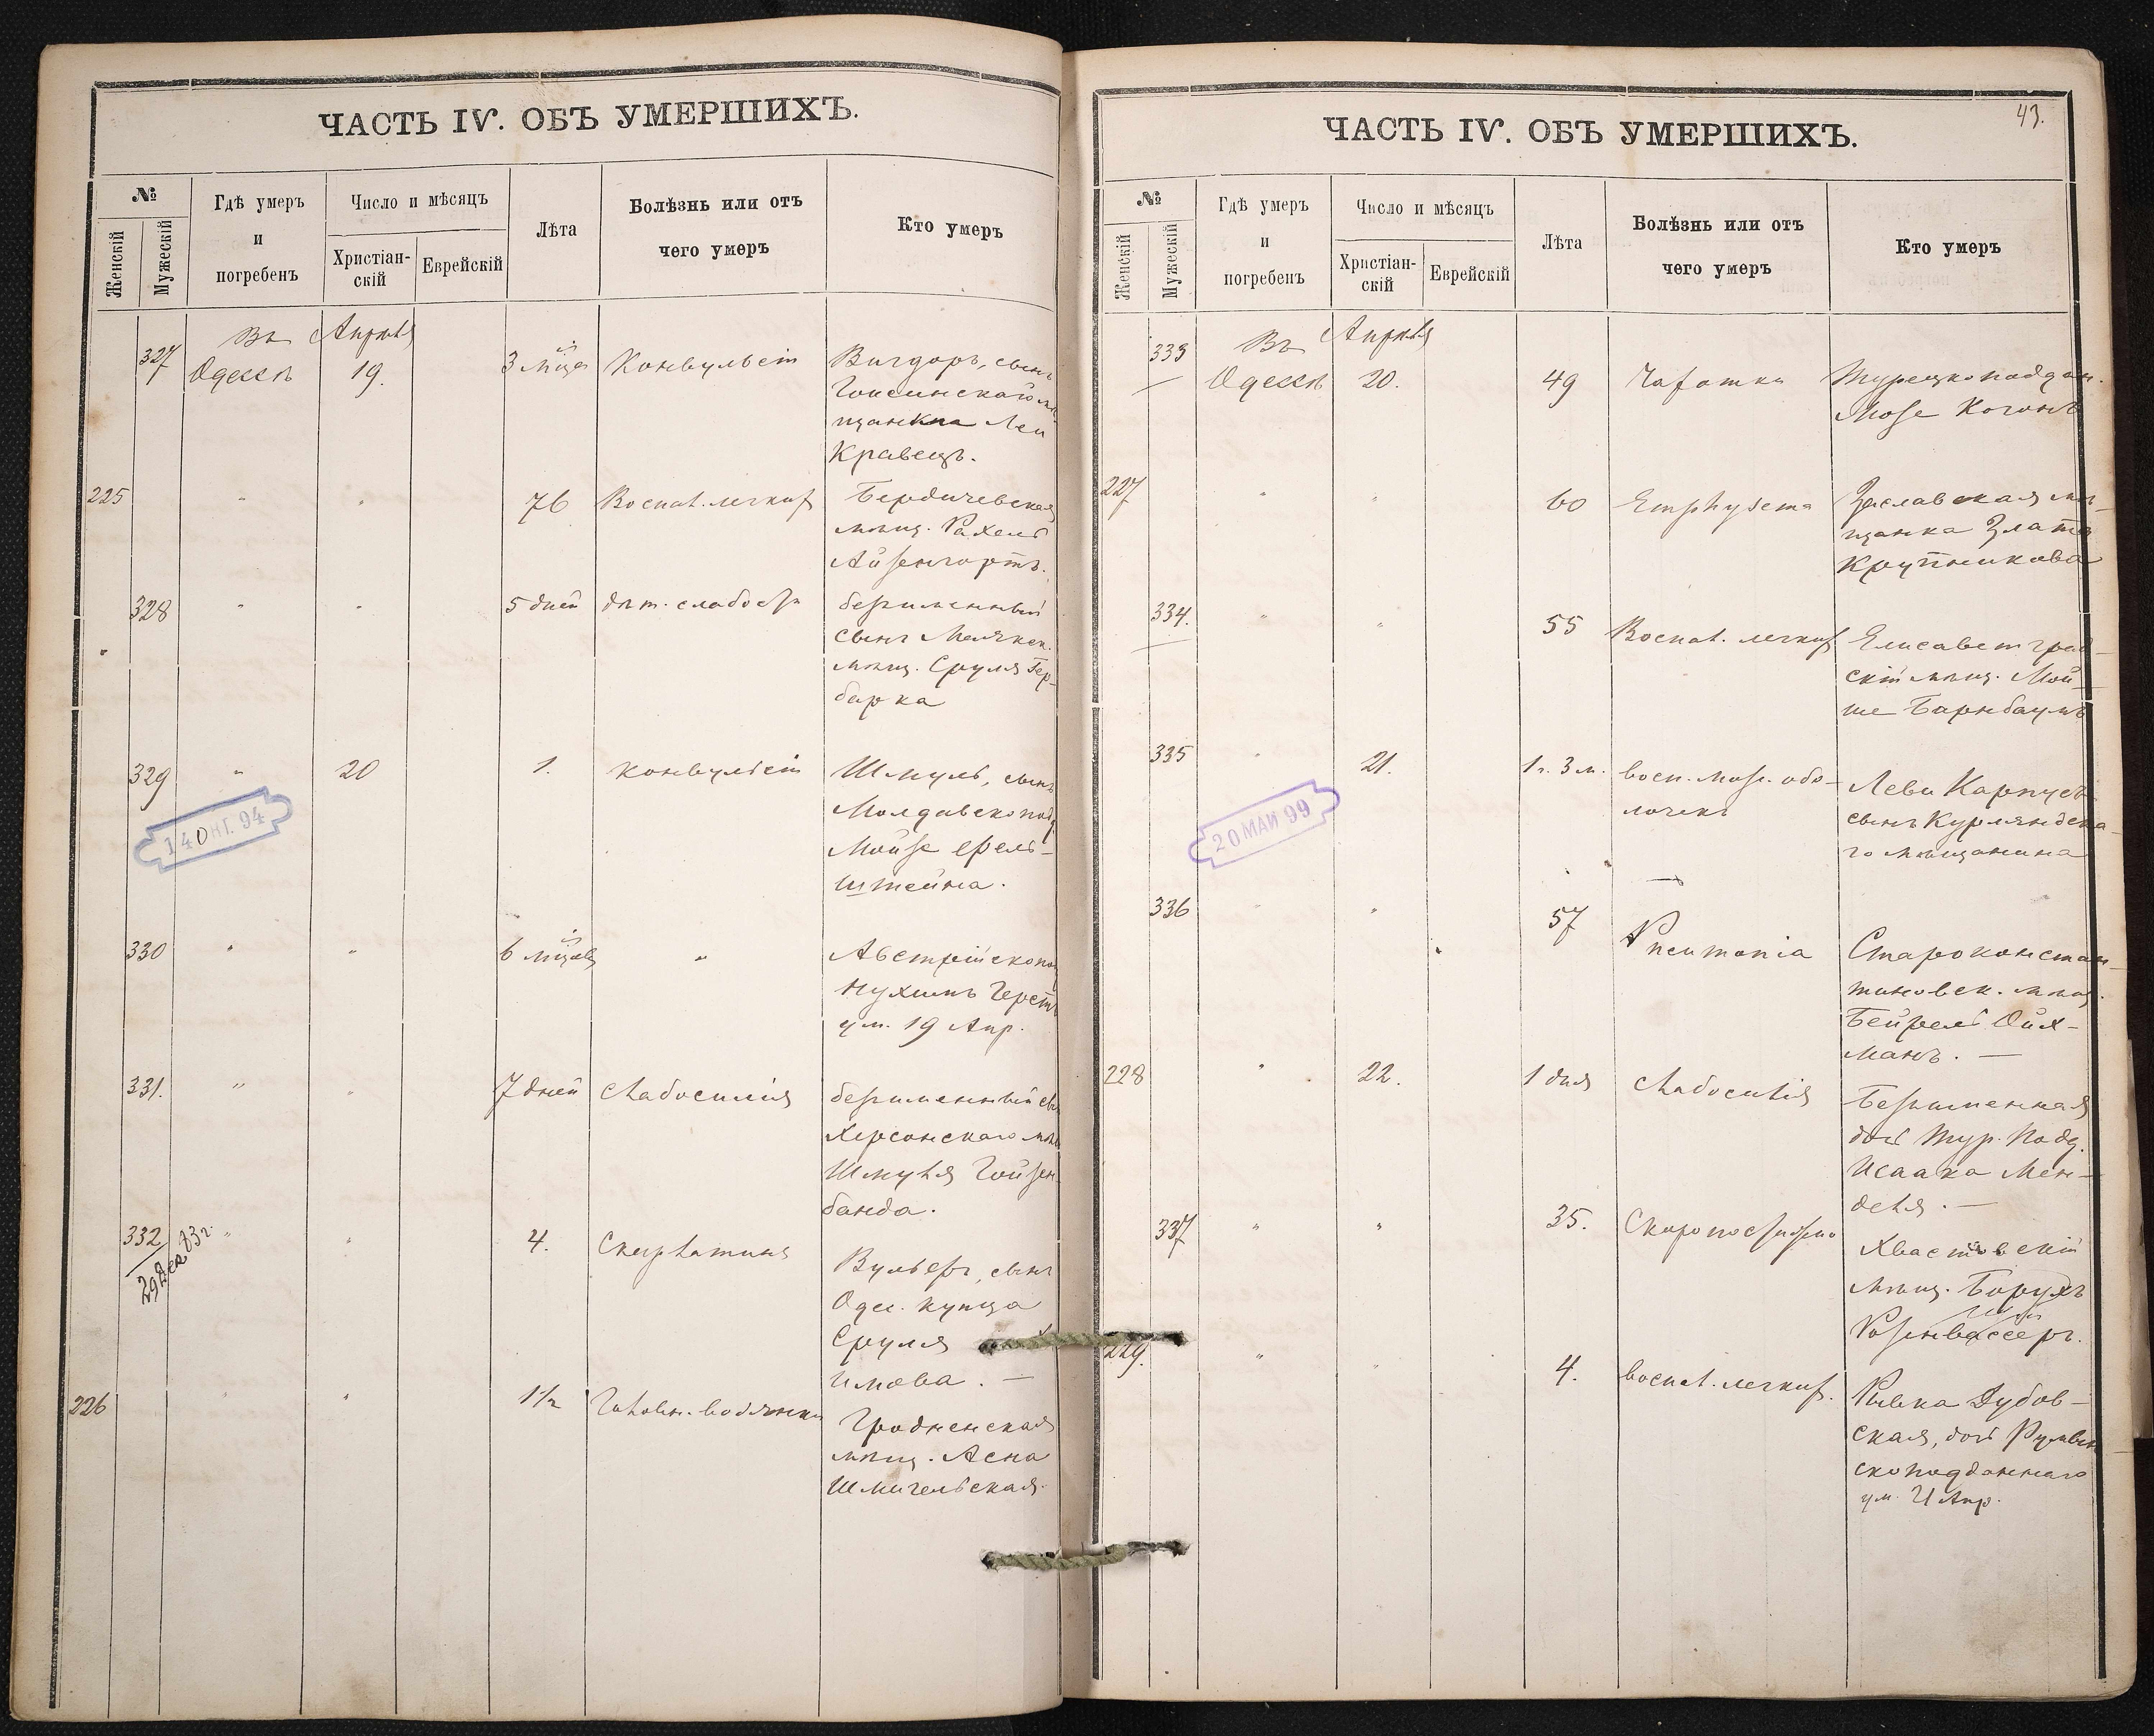 ЧАСТЬ IV. ОБЪ УМЕРШИХЪ.
№
Женскій
Мужескій
Гдѣ умеръ
и
погребенъ
Число и мѣсяцъ
Христіан-
скій
Еврейскій
Лѣта
Болѣзнь или отъ
чего умеръ
Кто умеръ
327
Въ Одессѣ
Апрѣля
19.
3 мѣсца
Конвульсіи
Вигдоръ, сынъ
мѣ-
щанина Леи
Кравецъ.
225
"
"
76
Воспал. легкихъ
Бердичевская
мѣщ. Рахель
Айзенгортъ.
328
"
"
5 дней
дѣт. слабость
безименный
сынъ
мѣщ. Сруля Гер-
барка
329
"
20
1.
Конвульсіи
Шмуль, сынъ
Молдавскопод
Мойзе Фель-
штейна.
14 ОКТ. 94
330
"
"
6 мѣсцовъ
"
Австрійскопод
Нухимъ Герстъ
ум. 19 Апр.
331.
"
"
7 дней
Слабосилія
безименный сын
Херсонскаго мѣщ
Шмуля Гойзен-
банда.
332
29 Дек 83 г.
"
"
4.
Скарлатина
Вульфъ, сынъ
Одес. купца
Сруля
226
"
"
1 1/2
Головн. водянка
Гродненская
мѣщ. Асна
Шмигельская.
43.
ЧАСТЬ IV. ОБЪ УМЕРШИХЪ.
№
Женскій
Мужескій
Гдѣ умеръ
и
погребенъ
Число и мѣсяцъ
Христіан-
скій
Еврейскій
Лѣта
Болѣзнь или отъ
чего умеръ
Кто умеръ
333
Въ Одессѣ
Апрѣля
20.
49
Чахотка
Турецкоподдан.
Мозе Когонъ
227
"
"
60
Emphysema
Заславская мѣ-
щанка Злата
Крупникова
334.
"
"
55
Воспал. легких
Елисаветград-
скій мѣщ. Мой-
ше Барнбаумъ
335
"
21.
1 г. 3 м.
восп. мозг. обо-
лочекъ
Леви Карпусъ
сынъ Курляндска-
го мѣщанина
20 МАЙ 99
336
"
"
57
Pneumonia
Староконстан-
тиновск. мѣщ.
Бейрель Ойх-
манъ. —
228
"
22.
1 дня
Слабосилія
Безименная
дочь Тур. Подд.
Исаака Мен-
деля. —
337
"
"
35.
Скоропостижно
Хвастовскій
мѣщ. Борухъ
Розенвассеръ.
229.
"
"
4.
воспал. легких.
Ривка Дубов-
ская, дочь Румын-
скоподданнаго
ум. 21 Апр.